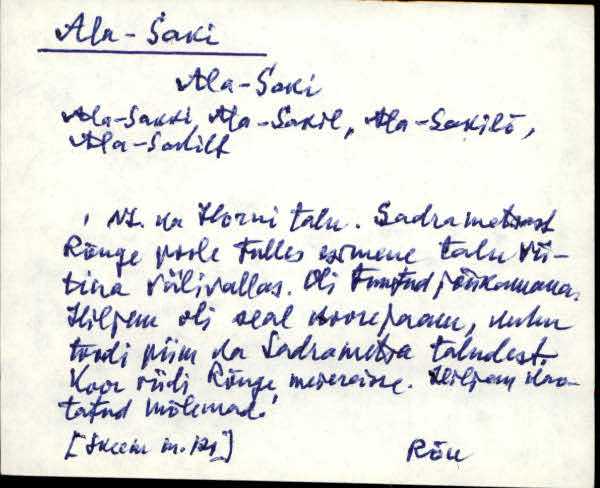 Ala-Saki
Ala-Saki
Ala-Sakki Ala-Sakil, Ala-Sakilõ,
Ala-Sakilt
ka Horni talu. Sadrametsast
Rõnge poole tulles esimene talu Rii-
tina välivallas. Oli tuntud
Hiljem oli seal koorejaam, kuhu
toodi piim ka Sadrametsa taludest.
Koor viidi Rõnge meiereisse. Hiljem kao-
tatud mõlemad.
[Skeem
Rõu